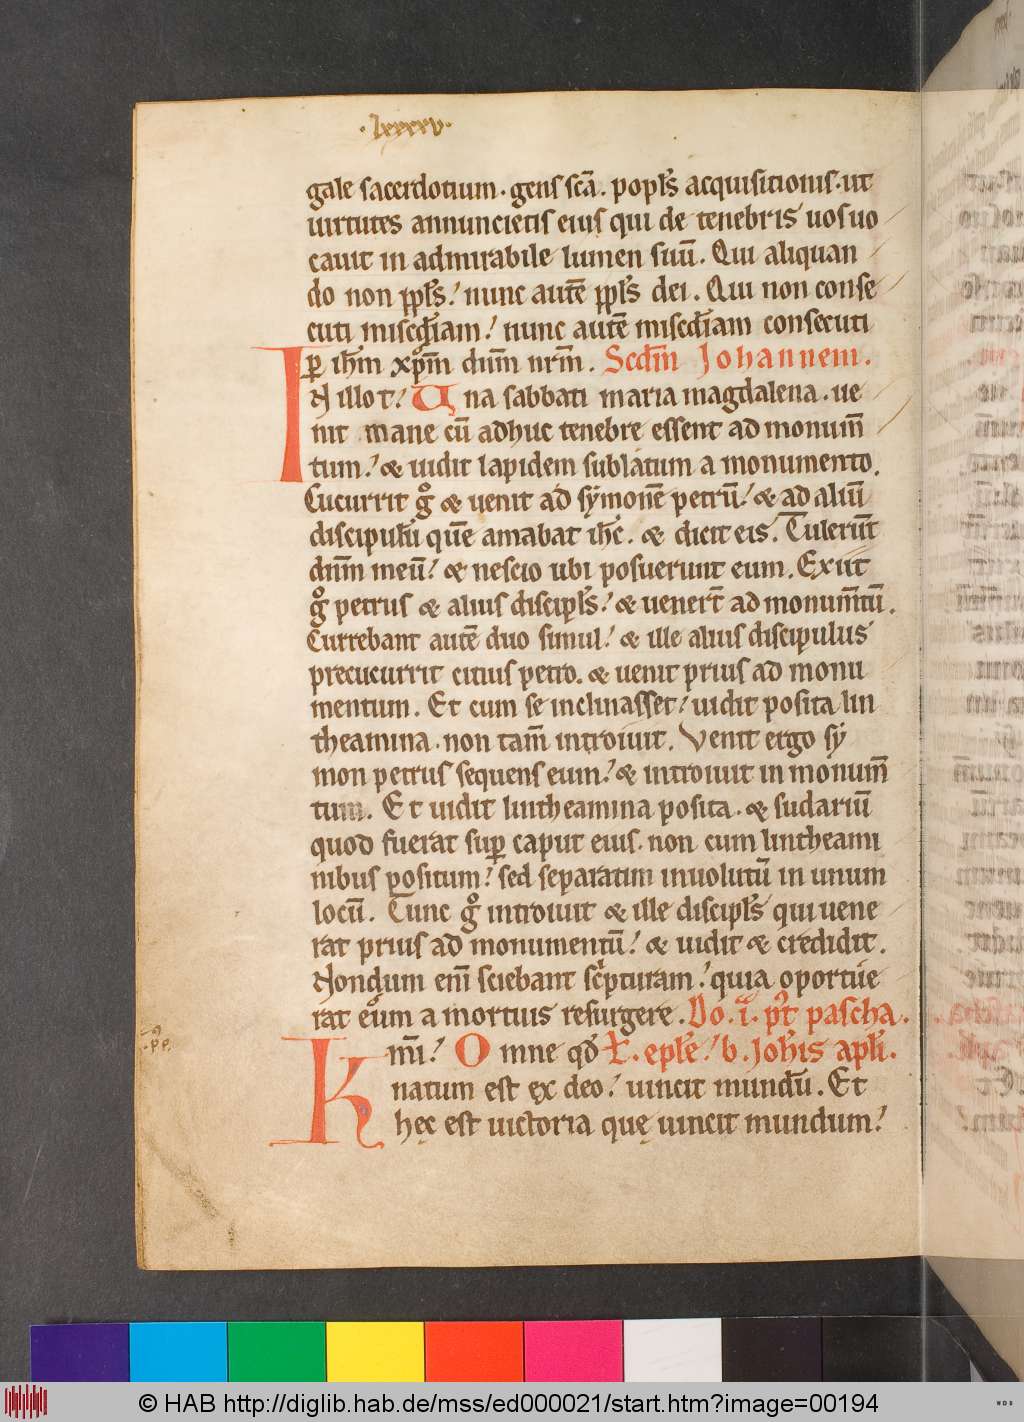 ·lxxxxv·
gale sacerdotium · gens scā . popl's acquisitionis · ut
uirtutes annuncietis eius qui de tenebris uos uo
cauit in admirabile lumen suū . Qui aliquan
do non ppl's ! nunc autē ppl's dei . Qui non conse
cuti misc̄diam ! nunc autē misc̄diam consecuti
p̲ ih̄m xp̄m dn̄m nr̄m . Scd̄m Johannem .
IN illo t ! Una sabbati maria magdalena . ue
nit mane cū adhuc tenebre essent ad monum̄
tum ! & uidit lapidem sublatum a monumento .
Cucurrit gͦ & uenit ad symonē petrū ! & ad aliū
discipulū quē amabat ih̄c . & dicit eis . Tulerūt
dn̄m meū ! & nescio ubi posuerunt eum . Exiit
gͦ petrus & alius discipl's ! & uener̄t ad monum̄tū .
Currebant autē duo simul ! & ille alius discipulus
precucurrit citius petro . & uenit prius ad monu
mentum . Et cum se inclinasset ! uidit posita lin
theamina . non tam̄ introiuit . Venit ergo sy
mon petrus sequens eum ! & introiuit in monum̄
tum . Et uidit lintheamina posita . & sudariū
quod fuerat sup̲ caput eius . non cum lintheami
nibus positum ! sed separatim inuolutū in unum
locū . Tunc gͦ introiuit & ille discipl's qui uene
rat prius ad monumentū ! & uidit & credidit .
Nondum eni̅ sciebant scͥpturam ! quia oportue
rat eum a mortuis resurgere . Do . i . p't pascha .
K m̄i ! Omne qd̄ ł . epl'e ! b . Joh'is apl'i .
natum est ex deo ! uincit mundū . Et
hęc est uictoria quę uincit mundum !
© HAB http://diglib.hab.de/mss/ed000021/start.htm?image=00194